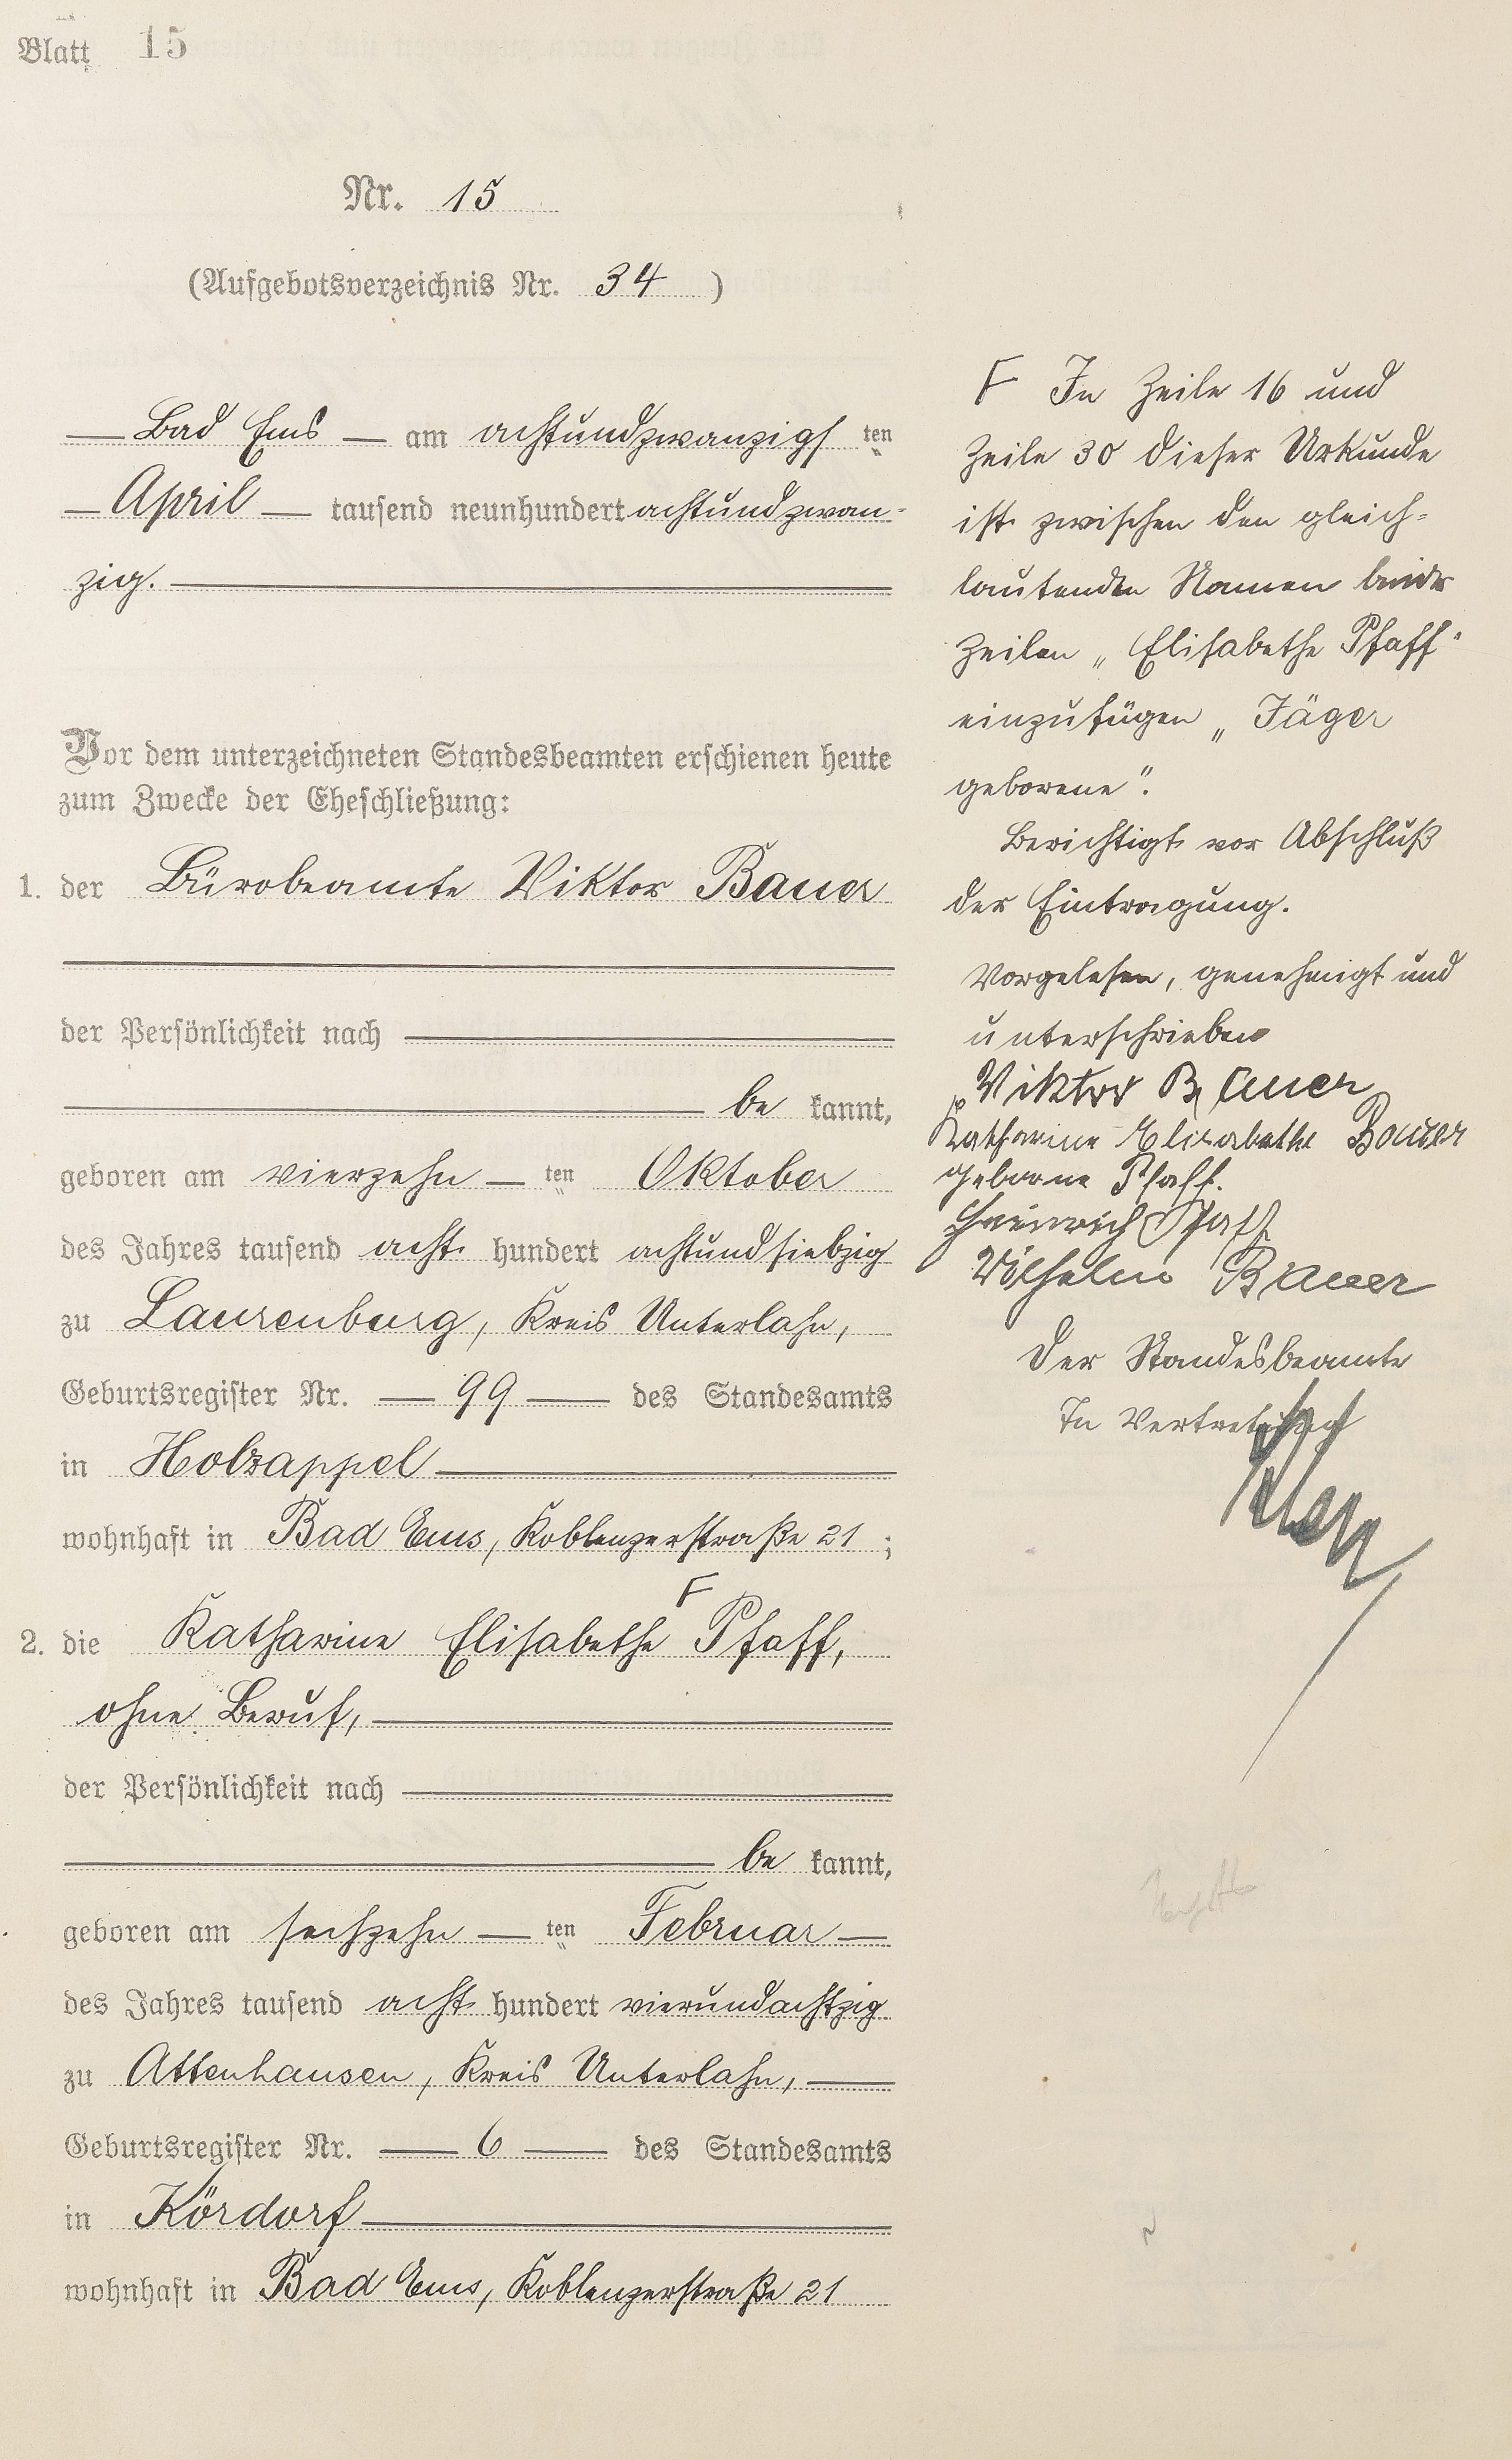 Blatt 15
Nr. 15
(Aufgebotsverzeichnis Nr. 34 )
Bad Ems am achtundzwanzigsten
April tausend neunhundert achtundzwan-
zig.
Vor dem unterzeichneten Standesbeamten erschienen heute
zum Zwecke der Eheschließung:
1. der Bürobeamte Viktor Bauer
der Persönlichkeit nach
be kannt,
geboren am vierzehn ten Oktober
des Jahres tausend acht hundert achtundsiebzig
zu Laurenburg, Kreis Unterlahn,
Geburtsregister Nr. 99 des Standesamts
in Holzappel
wohnhaft in Bad Ems, Koblenzerstraße 21 ;
2. die Katharine Elisabethe F Pfaff,
ohne Beruf,
der Persönlichkeit nach
be kannt,
geboren am sechzehn ten Februar
des Jahres tausend acht hundert vierundachtzig
zu Attenhausen, Kreis Unterlahn,
Geburtsregister Nr. 6 des Standesamts
in Kördorf
wohnhaft in Bad Ems, Koblenzerstraße 21
F In Zeile 16 und
Zeile 30 dieser Urkunde
ist zwischen den gleich-
lautenden Namen beider
Zeilen „Elisabethe Pfaff"
einzufügen „Jäger
geborene".
Berichtigt vor Abschluß
der Eintragung.
Vorgelesen, genehmigt und
unterschrieben
Viktor Bauer
Katharine Elisabethe Bauer
geborne Pfaff.
Heinrich Pfaff
Wilhelm Bauer
Der Standesbeamte
In Vertretung